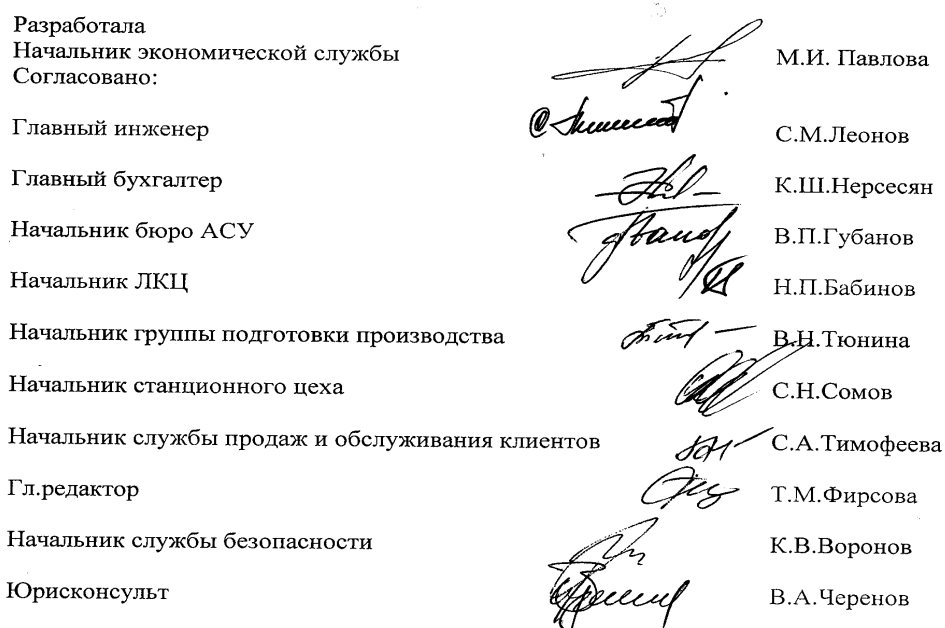 Разработала
Начальник экономической службы М.И. Павлова
Согласовано:
Главный инженер С.М.Леонов
Главный бухгалтер К.Ш.Нерсесян
Начальник бюро АСУ В.П.Губанов
Начальник ЛКЦ Н.П.Бабинов
Начальник группы подготовки производства В.Н.Тюнина
Начальник станционного цеха С.Н.Сомов
Начальник службы продаж и обслуживания клиентов С.А.Тимофеева
Гл.редактор Т.М.Фирсова
Начальник службы безопасности К.В.Воронов
Юрисконсульт В.А.Черенов